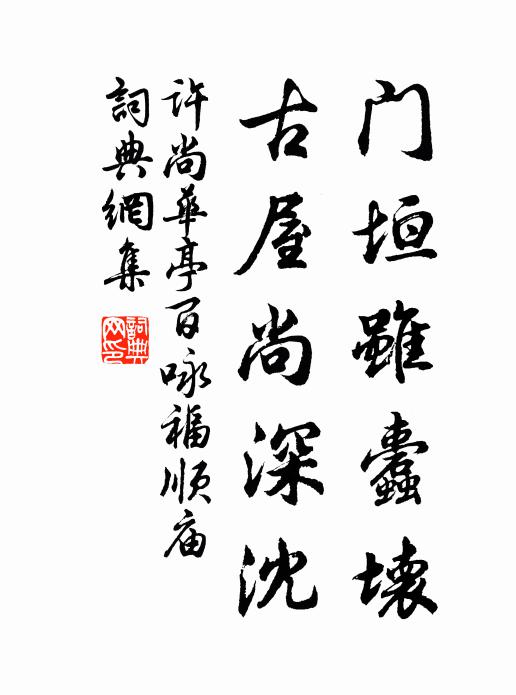 门垣雖蠹壊
古屋尚深沈
许尚華亭百咏福顺庙
詞典網集
詞典网印